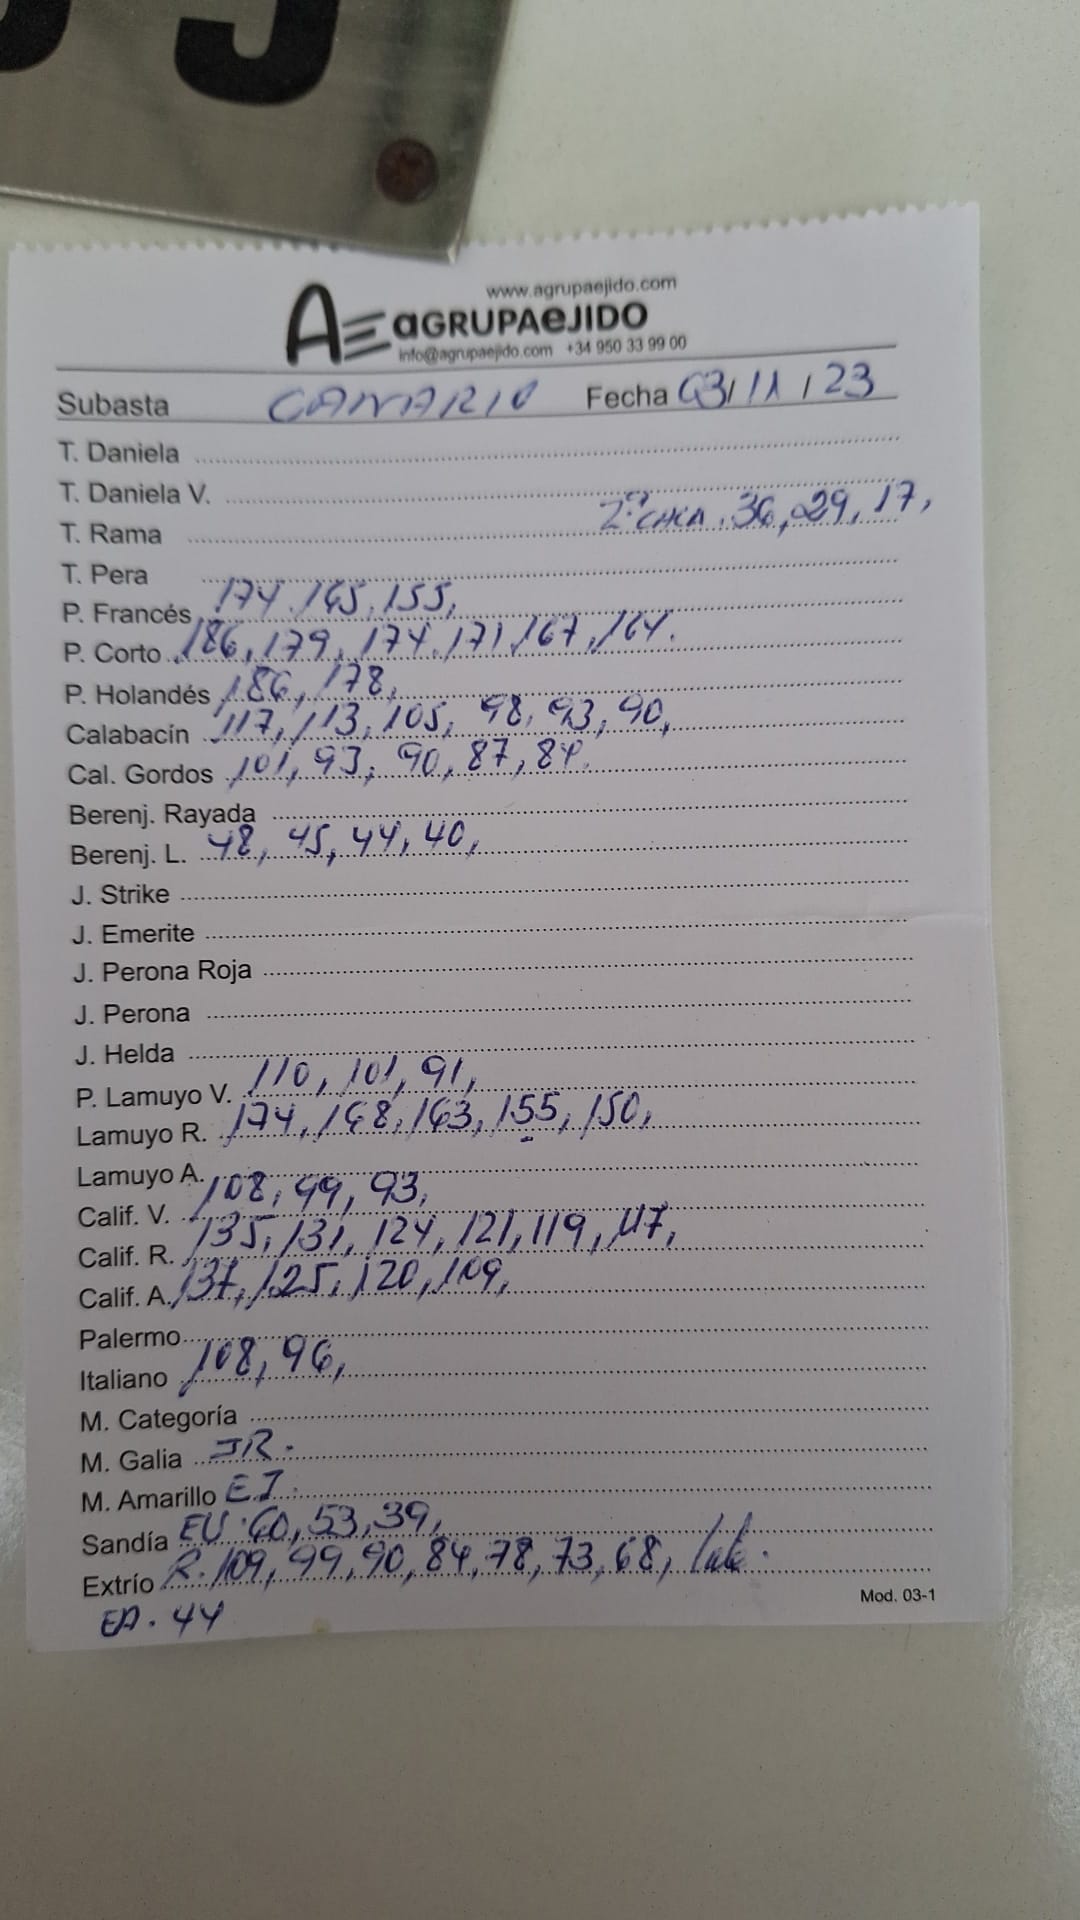 www.agrupaejido.com
AE aGRUPAeJIDO
info@agrupaejido.com +34 950 33 99 00
Subasta CANARIO Fecha 03/11/23
T. Daniela
T. Daniela V.
T. Rama 36, 29, 17,
T. Pera
P. Francés 174, 165, 155,
P. Corto 186, 179, 174, 171, 167, 164.
P. Holandés 186, 178,
Calabacín 117, 113, 105, 98, 93, 90,
Cal. Gordos 101, 93, 90, 87, 84.
Berenj. Rayada
Berenj. L. 48, 45, 44, 40,
J. Strike
J. Emerite
J. Perona Roja
J. Perona
J. Helda
P. Lamuyo V. 110, 101, 91,
Lamuyo R. 174, 168, 163, 155, 150,
Lamuyo A.
Calif. V. 108, 99, 93,
Calif. R. 135, 131, 124, 121, 119, 117,
Calif. A. 137, 125, 120, 109,
Palermo
Italiano 108, 96,
M. Categoría
M. Galia JR.
M. Amarillo EJ.
Sandía EU. 60, 53, 39,
Extrío R. 109, 99, 90, 84, 78, 73, 68,
EA. 44
Mod. 03-1